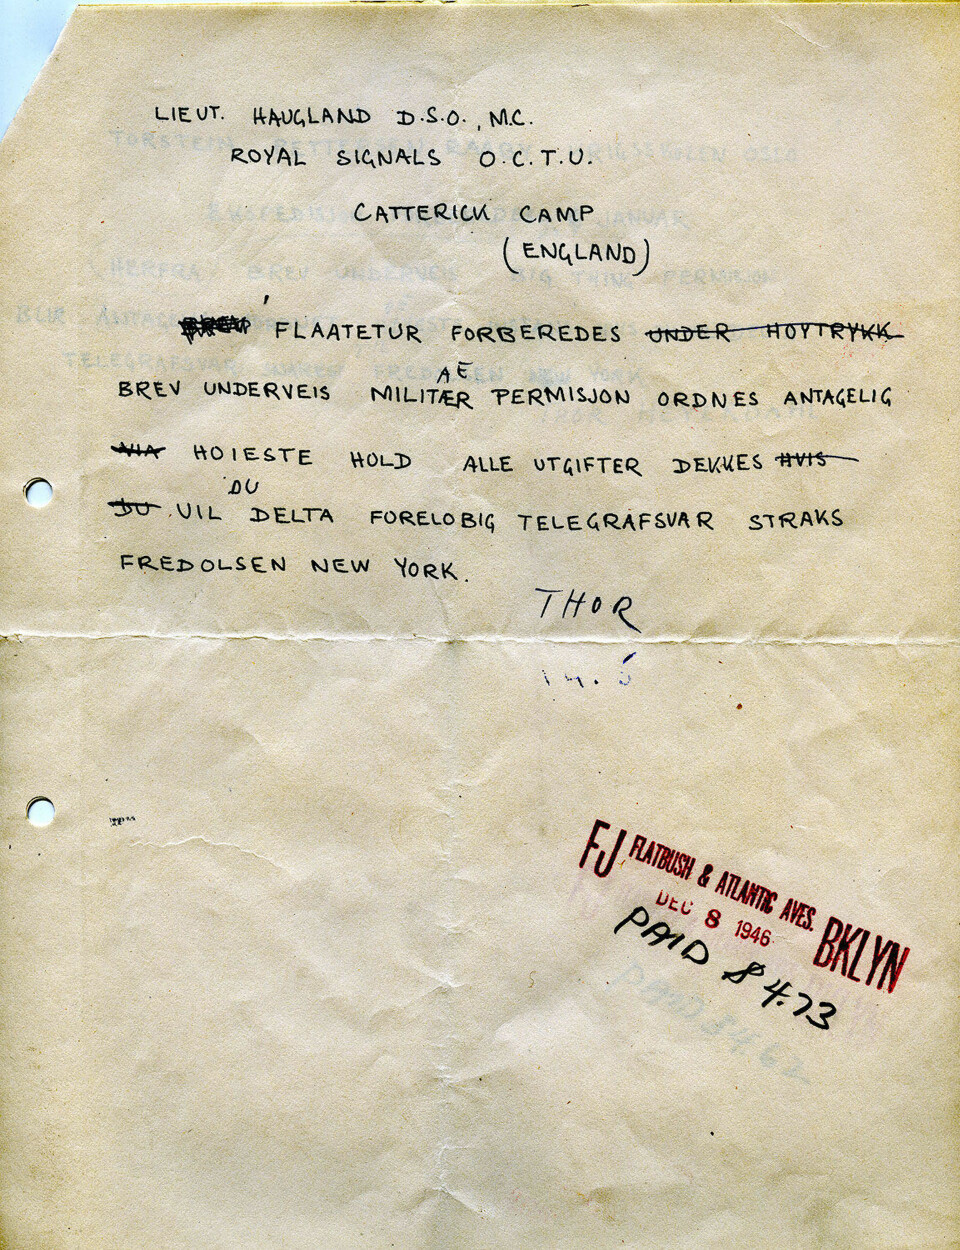 LIEUT. HAUGLAND D.S.O., M.C.
ROYAL SIGNALS O.C.T.U.
CATTERICK CAMP
(ENGLAND)
BREV FLAATETUR FORBEREDES UNDER HOYTRYKK
AE
BREV UNDERVEIS MILITÆR PERMISJON ORDNES ANTAGELIG
VIA HOIESTE HOLD ALLE UTGIFTER DEKKES HVIS
DU
DU VIL DELTA FORELOBIG TELEGRAFSVAR STRAKS
FREDOLSEN NEW YORK.
THOR
FJ FLATBUSH & ATLANTIC AVES. BKLYN
DEC 8 1946
PAID $4.73